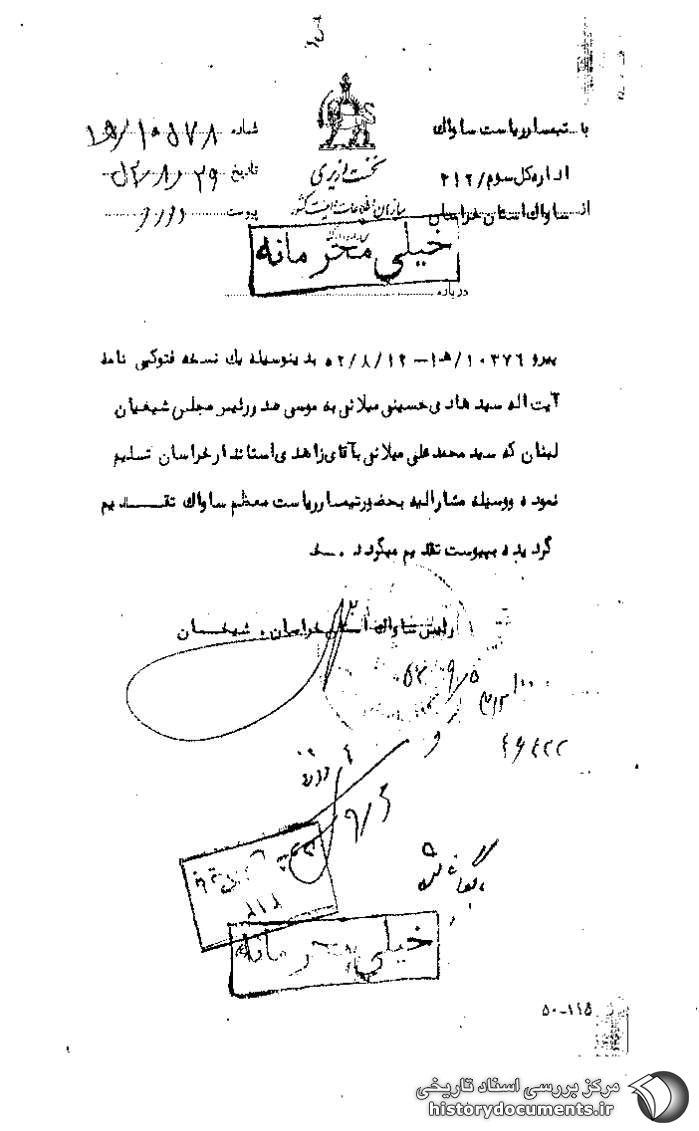 به تیمسار ریاست ساواک
اداره کل سوم / ۳۱۲
از ساواک استان خراسان
نخست وزیری
سازمان اطلاعات و امنیت کشور
شماره ۱۰۵۷۸/
تاریخ ۲۹/۸/۵۲
پیوست دارد
خیلی محرمانه
درباره
پیرو ۱۰۳۷۶/ه‍ ۱ـ ۵۲/۸/۱۲ بدینوسیله یک نسخه فتوکپی نامه
آیت اله سید هادی حسینی میلانی به موسی صدر رئیس مجلس شیعیان
لبنان که سید محمد علی میلانی بآقای زاهدی استاندار خراسان تسلیم
نموده و وسیله مشارالیه بحضور تیمسار ریاست معظم ساواک تقدیم
گردیده بپیوست تقدیم میگردد .
رئیس ساواک استان خراسان . شیخان
خیلی محرمانه
۵۰-۱۱۵
مرکز بررسی اسناد تاریخی
historydocuments.ir